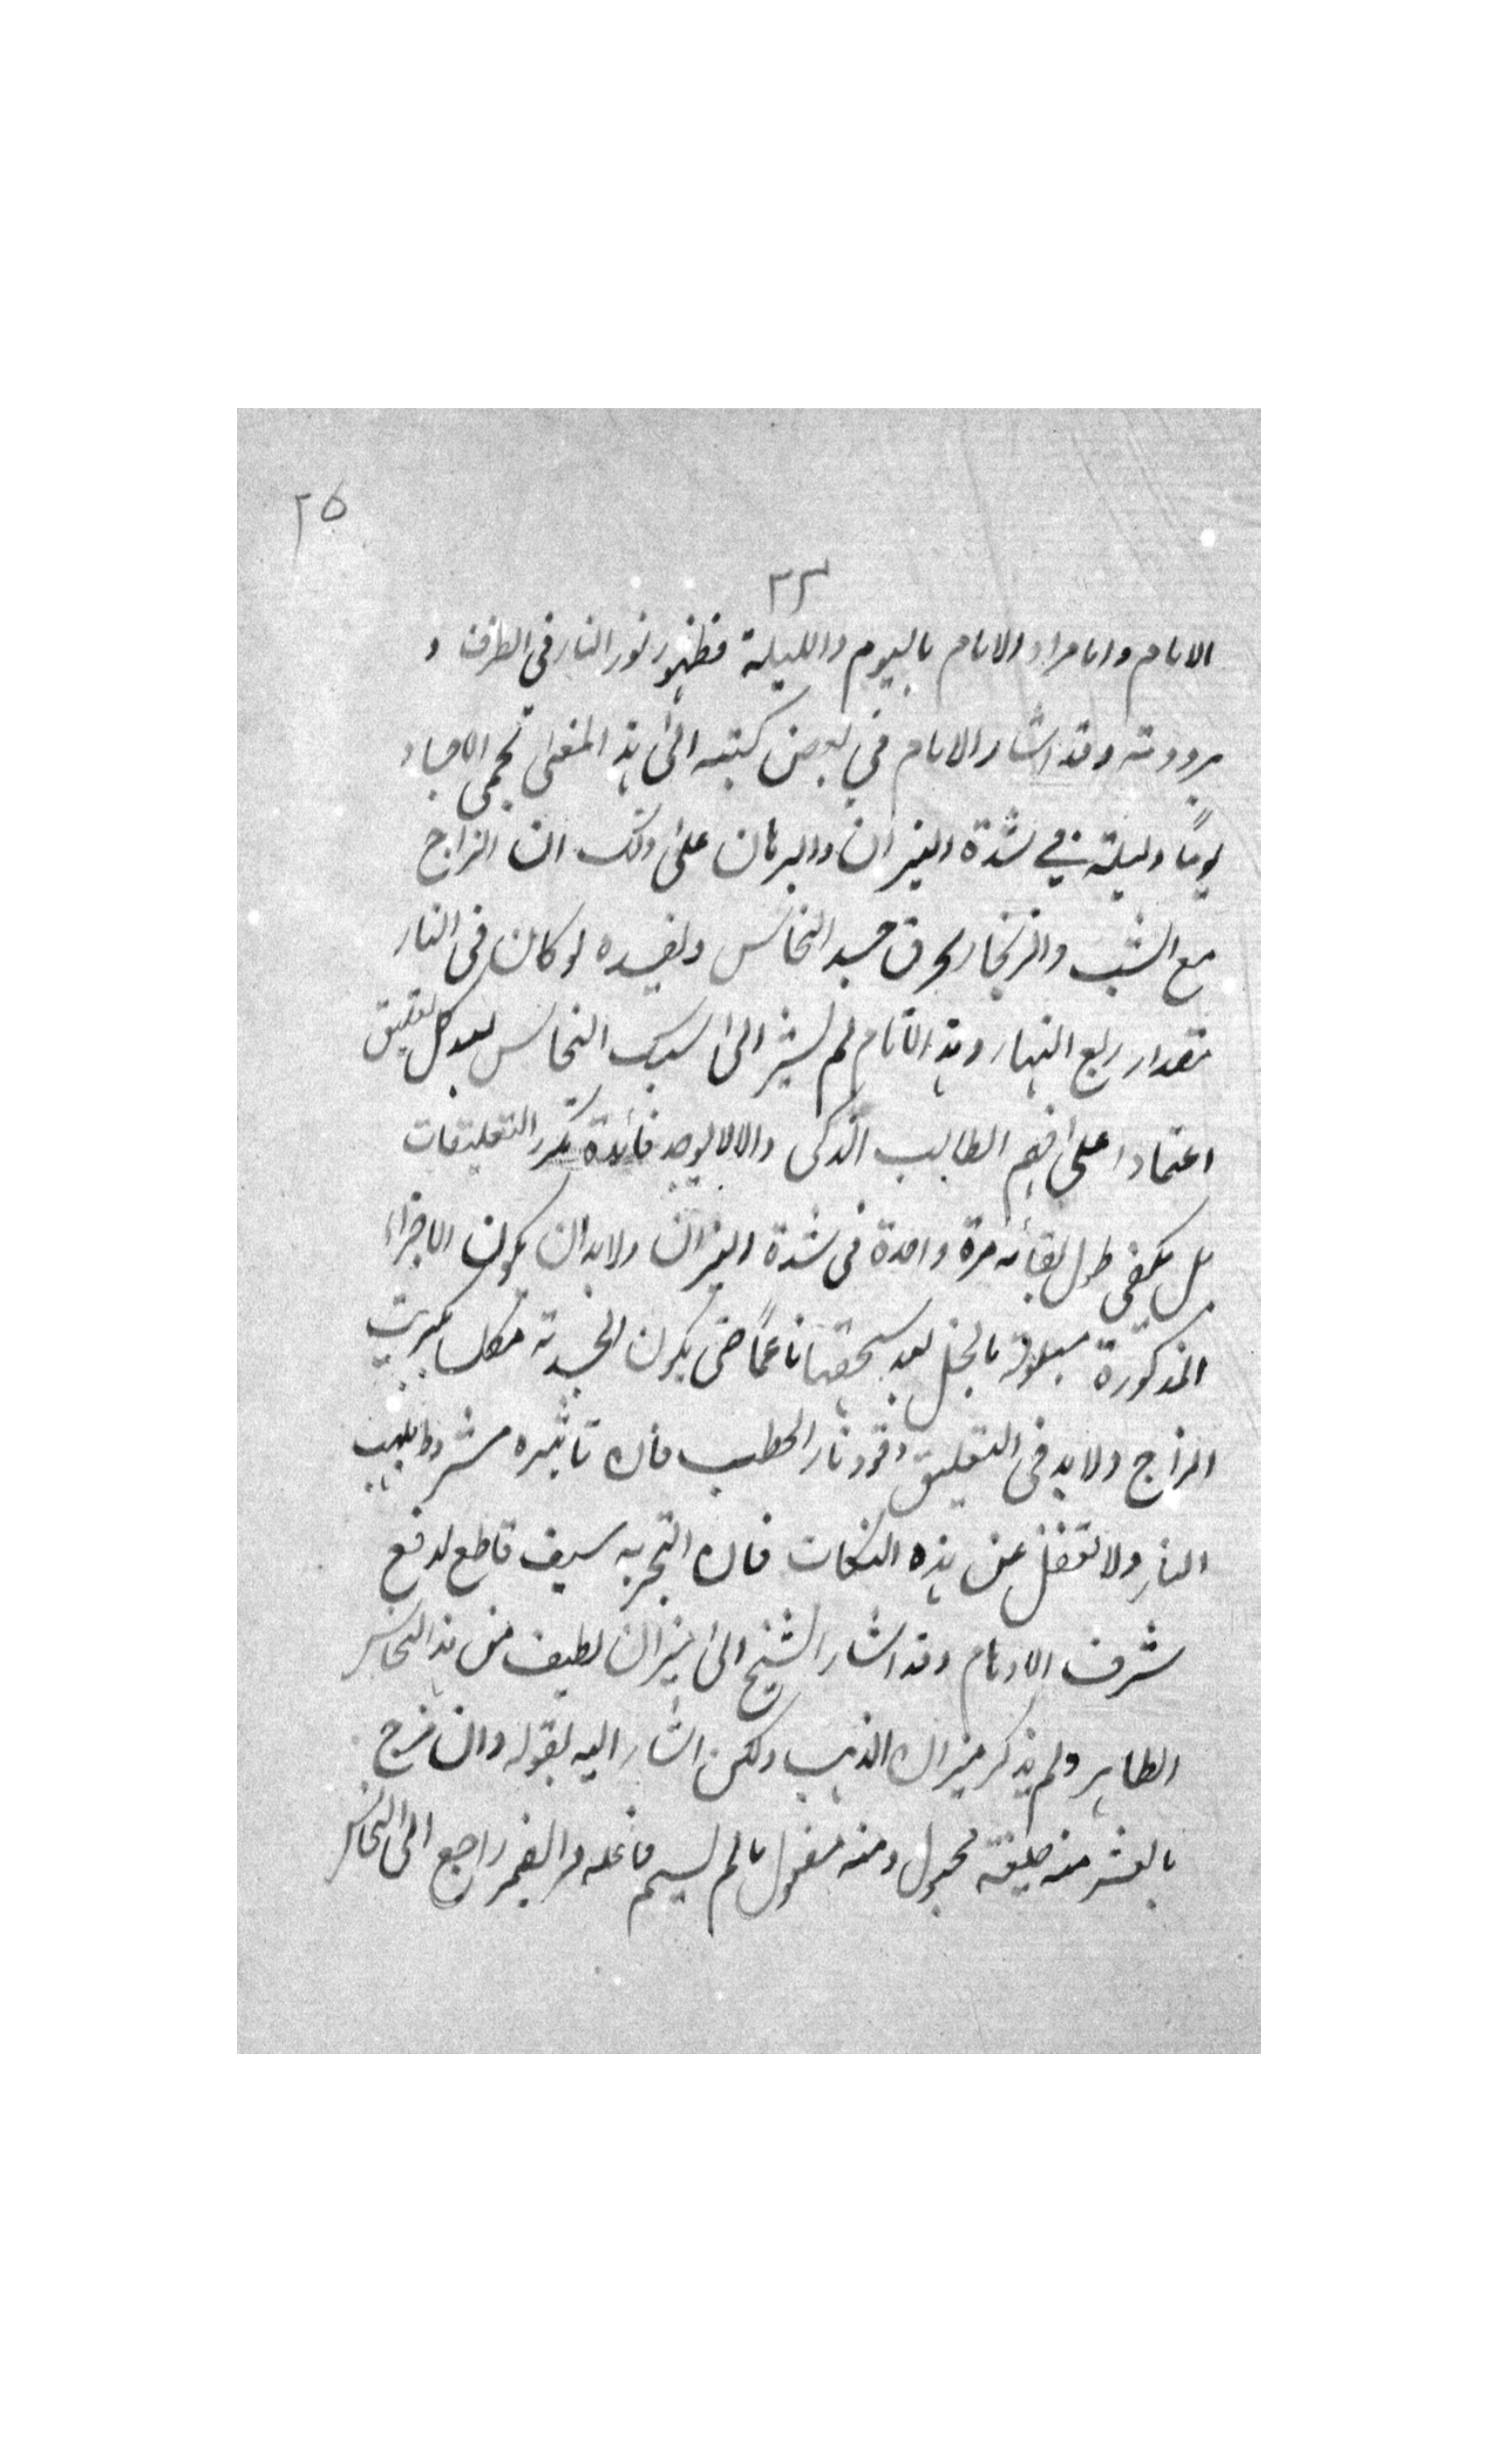 ٢٥
٣٣
الامام واما مراد الامام باليوم والليلة فظهور نور النار في الطرف و
برودته وقد اشار الامام في بعض كتبه الى هذا المعنى تحمى الاجساد
يوماً وليلة في شدة النيران والبرهان على ذلك ان الزاج
مع الشب والزنجار يحرق جسد النحاس ويفسده لو كان في النار
مقدار ربع النهار وهذا الامام لم يشر الى سبك النحاس بعد كل تعليق
اعتمادا على فهم الطالب الذكى والا لا يوجد فائدة تكرر التعليقات
بل يكفى طول بقائه مرة واحدة فى شدة النيران ولابد ان يكون الاجزاء
المذكورة مبلولة بالخل بعد سحقها ناعماً حتى يكون كبريت
الزاج ولابد فى التعليق وقود نار الحطب فان تاثيره مشروط بلهب
النار ولا تغفل عن هذه النكات فان التجربه سيف قاطع لدفع
شرف الاوهام وقد اشار الشيخ الى ميزان لطيف من هذا النحاس
الطاهر ولم يذكر ميزان الذهب ولكن اشار اليه بقوله وان مزج
بالعشر منه مجهول ومنه مفعول مالم يسم فاعله و الضمير راجع الى النحاس